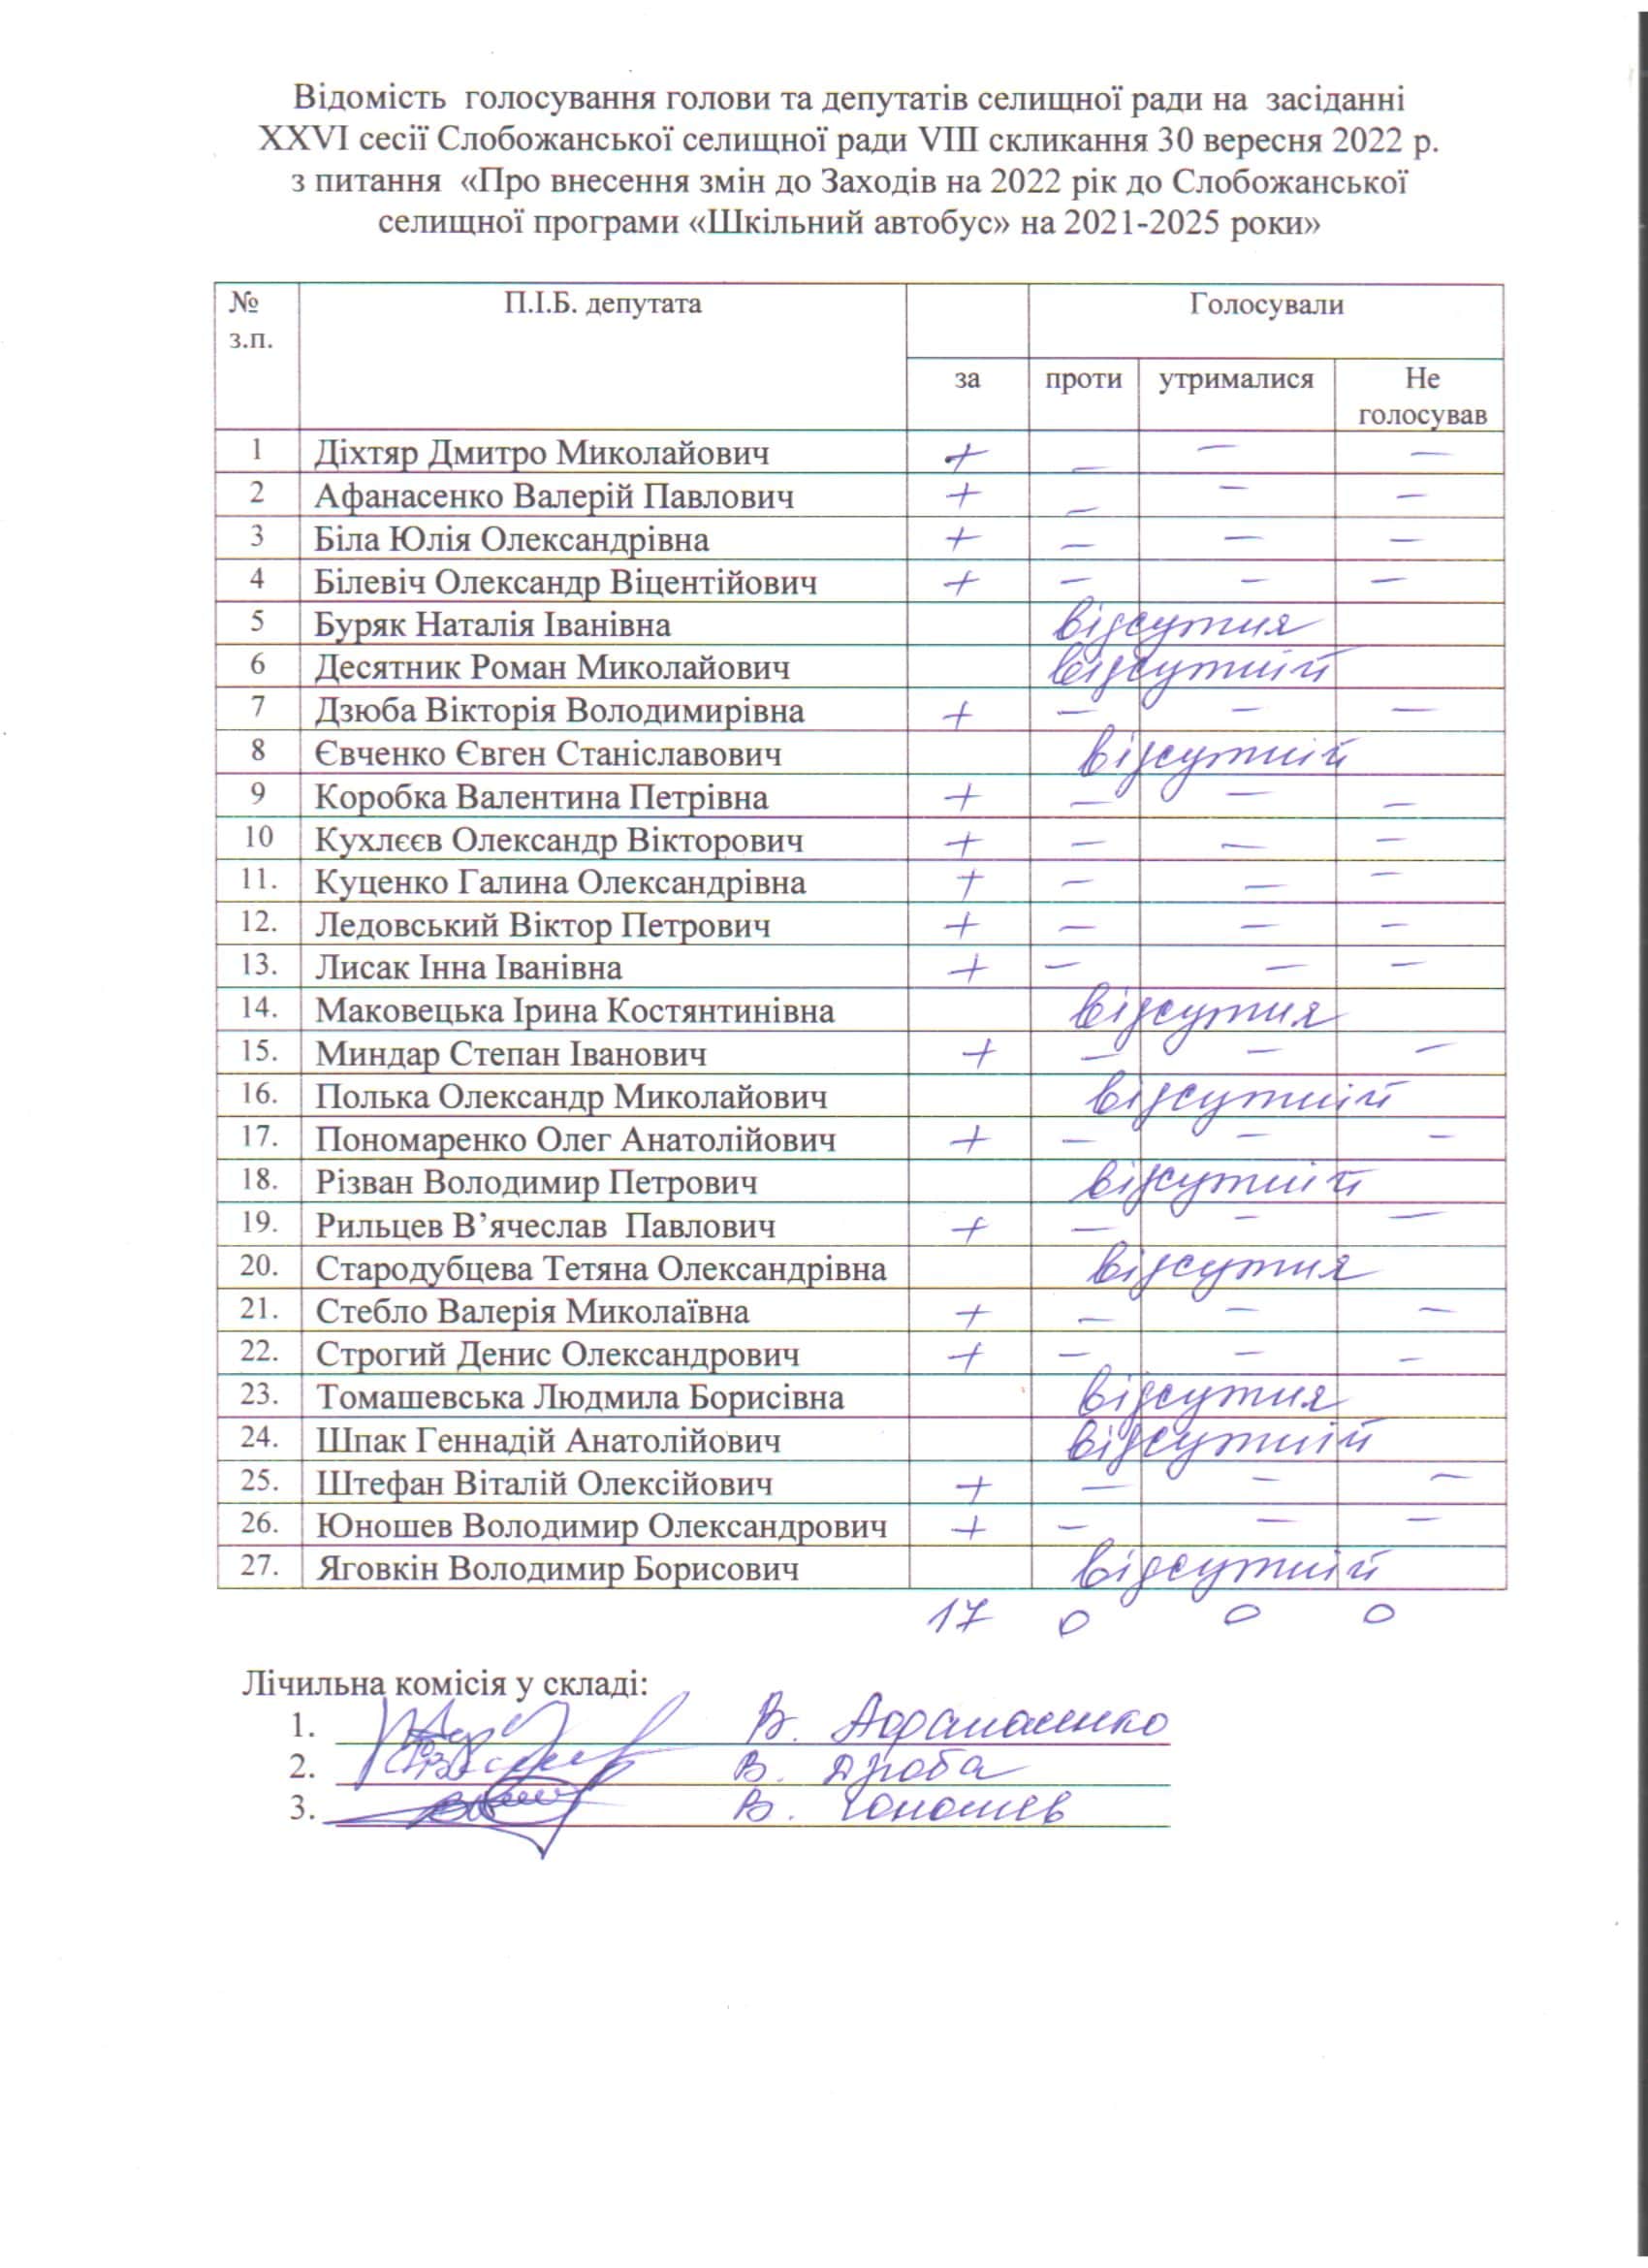 Відомість голосування голови та депутатів селищної ради на засіданні
XXVI сесії Слобожанської селищної ради VIII скликання 30 вересня 2022 р.
з питання «Про внесення змін до Заходів на 2022 рік до Слобожанської
селищної програми «Шкільний автобус» на 2021-2025 роки»
№ з.п. П.І.Б. депутата Голосували
за проти утрималися Не голосував
1 Діхтяр Дмитро Миколайович + – – –
2 Афанасенко Валерій Павлович + – – –
3 Біла Юлія Олександрівна + – – –
4 Білевіч Олександр Віцентійович + – – –
5 Буряк Наталія Іванівна відсутня
6 Десятник Роман Миколайович відсутній
7 Дзюба Вікторія Володимирівна + – – –
8 Євченко Євген Станіславович відсутній
9 Коробка Валентина Петрівна + – – –
10 Кухлєєв Олександр Вікторович + – – –
11. Куценко Галина Олександрівна + – – –
12. Ледовський Віктор Петрович + – – –
13. Лисак Інна Іванівна + – – –
14. Маковецька Ірина Костянтинівна відсутня
15. Миндар Степан Іванович + – – –
16. Полька Олександр Миколайович відсутній
17. Пономаренко Олег Анатолійович + – – –
18. Різван Володимир Петрович відсутній
19. Рильцев В’ячеслав Павлович + – – –
20. Стародубцева Тетяна Олександрівна відсутня
21. Стебло Валерія Миколаївна + – – –
22. Строгий Денис Олександрович + – – –
23. Томашевська Людмила Борисівна відсутня
24. Шпак Геннадій Анатолійович відсутній
25. Штефан Віталій Олексійович + – – –
26. Юношев Володимир Олександрович + – – –
27. Яговкін Володимир Борисович відсутній
17 0 0 0
Лічильна комісія у складі:
1. В. Афанасенко
2. В. Дзюба
3. В. Юношев